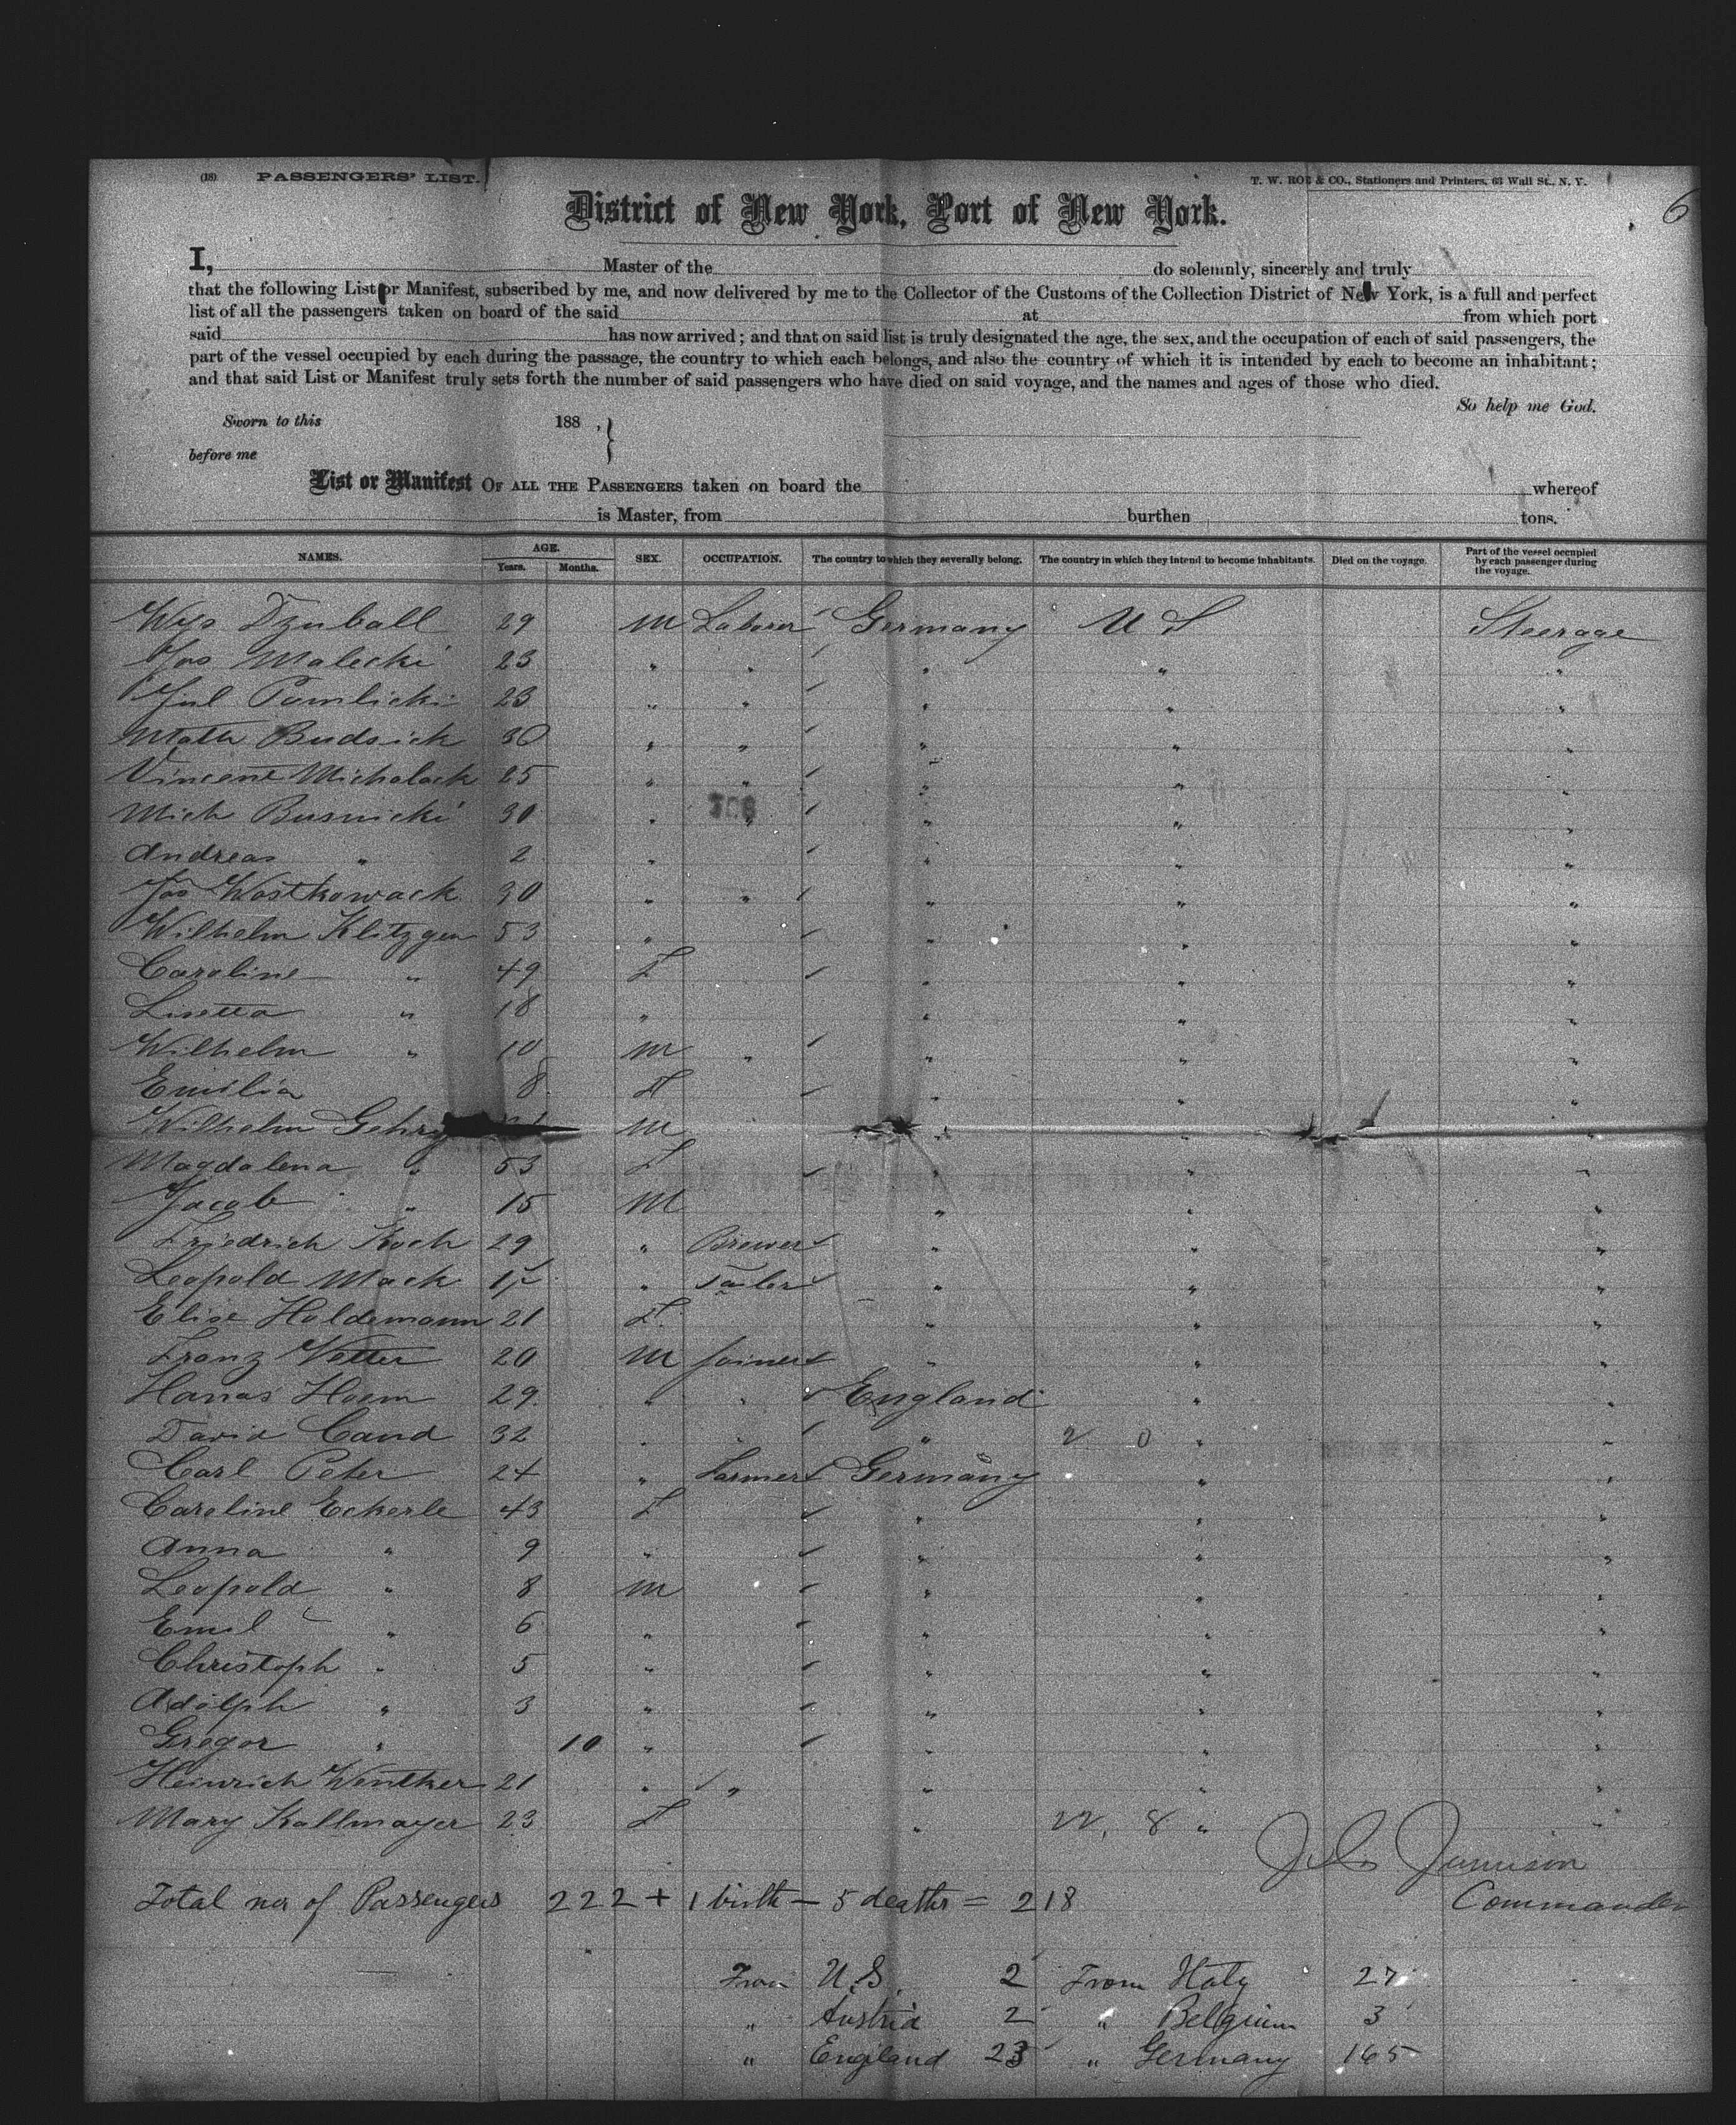 (18) PASSENGERS' LIST. T. W. ROE & CO., Stationers and Printers, 63 Wall St., N. Y.
6
District of New York, Port of New York.
I, Master of the do solemnly, sincerely and truly
that the following List or Manifest, subscribed by me, and now delivered by me to the Collector of the Customs of the Collection District of New York, is a full and perfect
list of all the passengers taken on board of the said at from which port
said has now arrived; and that on said list is truly designated the age, the sex, and the occupation of each of said passengers, the
part of the vessel occupied by each during the passage, the country to which each belongs, and also the country of which it is intended by each to become an inhabitant;
and that said List or Manifest truly sets forth the number of said passengers who have died on said voyage, and the names and ages of those who died.
So help me God.
Sworn to this 188 ,
before me
List or Manifest OF ALL THE PASSENGERS taken on board the whereof
is Master, from burthen tons.
NAMES. AGE. Years. Months. SEX. OCCUPATION. The country to which they severally belong. The country in which they intend to become inhabitants. Died on the voyage. Part of the vessel occupied by each passenger during the voyage.
Dzuball 29 M Laborer Germany U S Steerage
Jos Malecki 23 " " " " "
Jul Pawlicki 23 " " " " "
Math Budsick 30 " " " " "
Vincent Michalack 25 " " " " "
Mich Busnicki 30 " " " " "
Andreas " 2 " " " "
Jos Wostkowack 30 " " " " "
Wilhelm Klitzgen 53 " " " "
Caroline " 49 F " " "
Lisetta " 18 " " " "
Wilhelm " 10 M " " " "
Emilia 8 F " " "
Wilhelm M " " "
Magdalena " 53 F " " "
Jacob " 15 M " " "
Friedrich Koch 29 " Brewer " " "
Leopold Mack 17 " " " "
Elise Haldemann 21 F " " "
Franz Vetter 20 M Joiner " " "
29 " " England " "
David Cand 32 " " " " "
Carl Peter 24 " Farmer Germany " "
Caroline Eckerle 43 F " " "
Anna " 9 " " " "
Leopold " 8 M " " "
Emil " 6 " " " "
Christoph " 5 " " " "
Adolph " 3 " " " "
Gregor " 10 " " " "
Heinrich Wentker 21 " " " " "
Mary Kallmayer 23 F " " "
Jamison
Total no of Passengers 222 + 1 birth - 5 deaths = 218 Commander
From U.S. 2 From Italy 27
" Austria 2 " Belgium 3
" England 23 " Germany 165